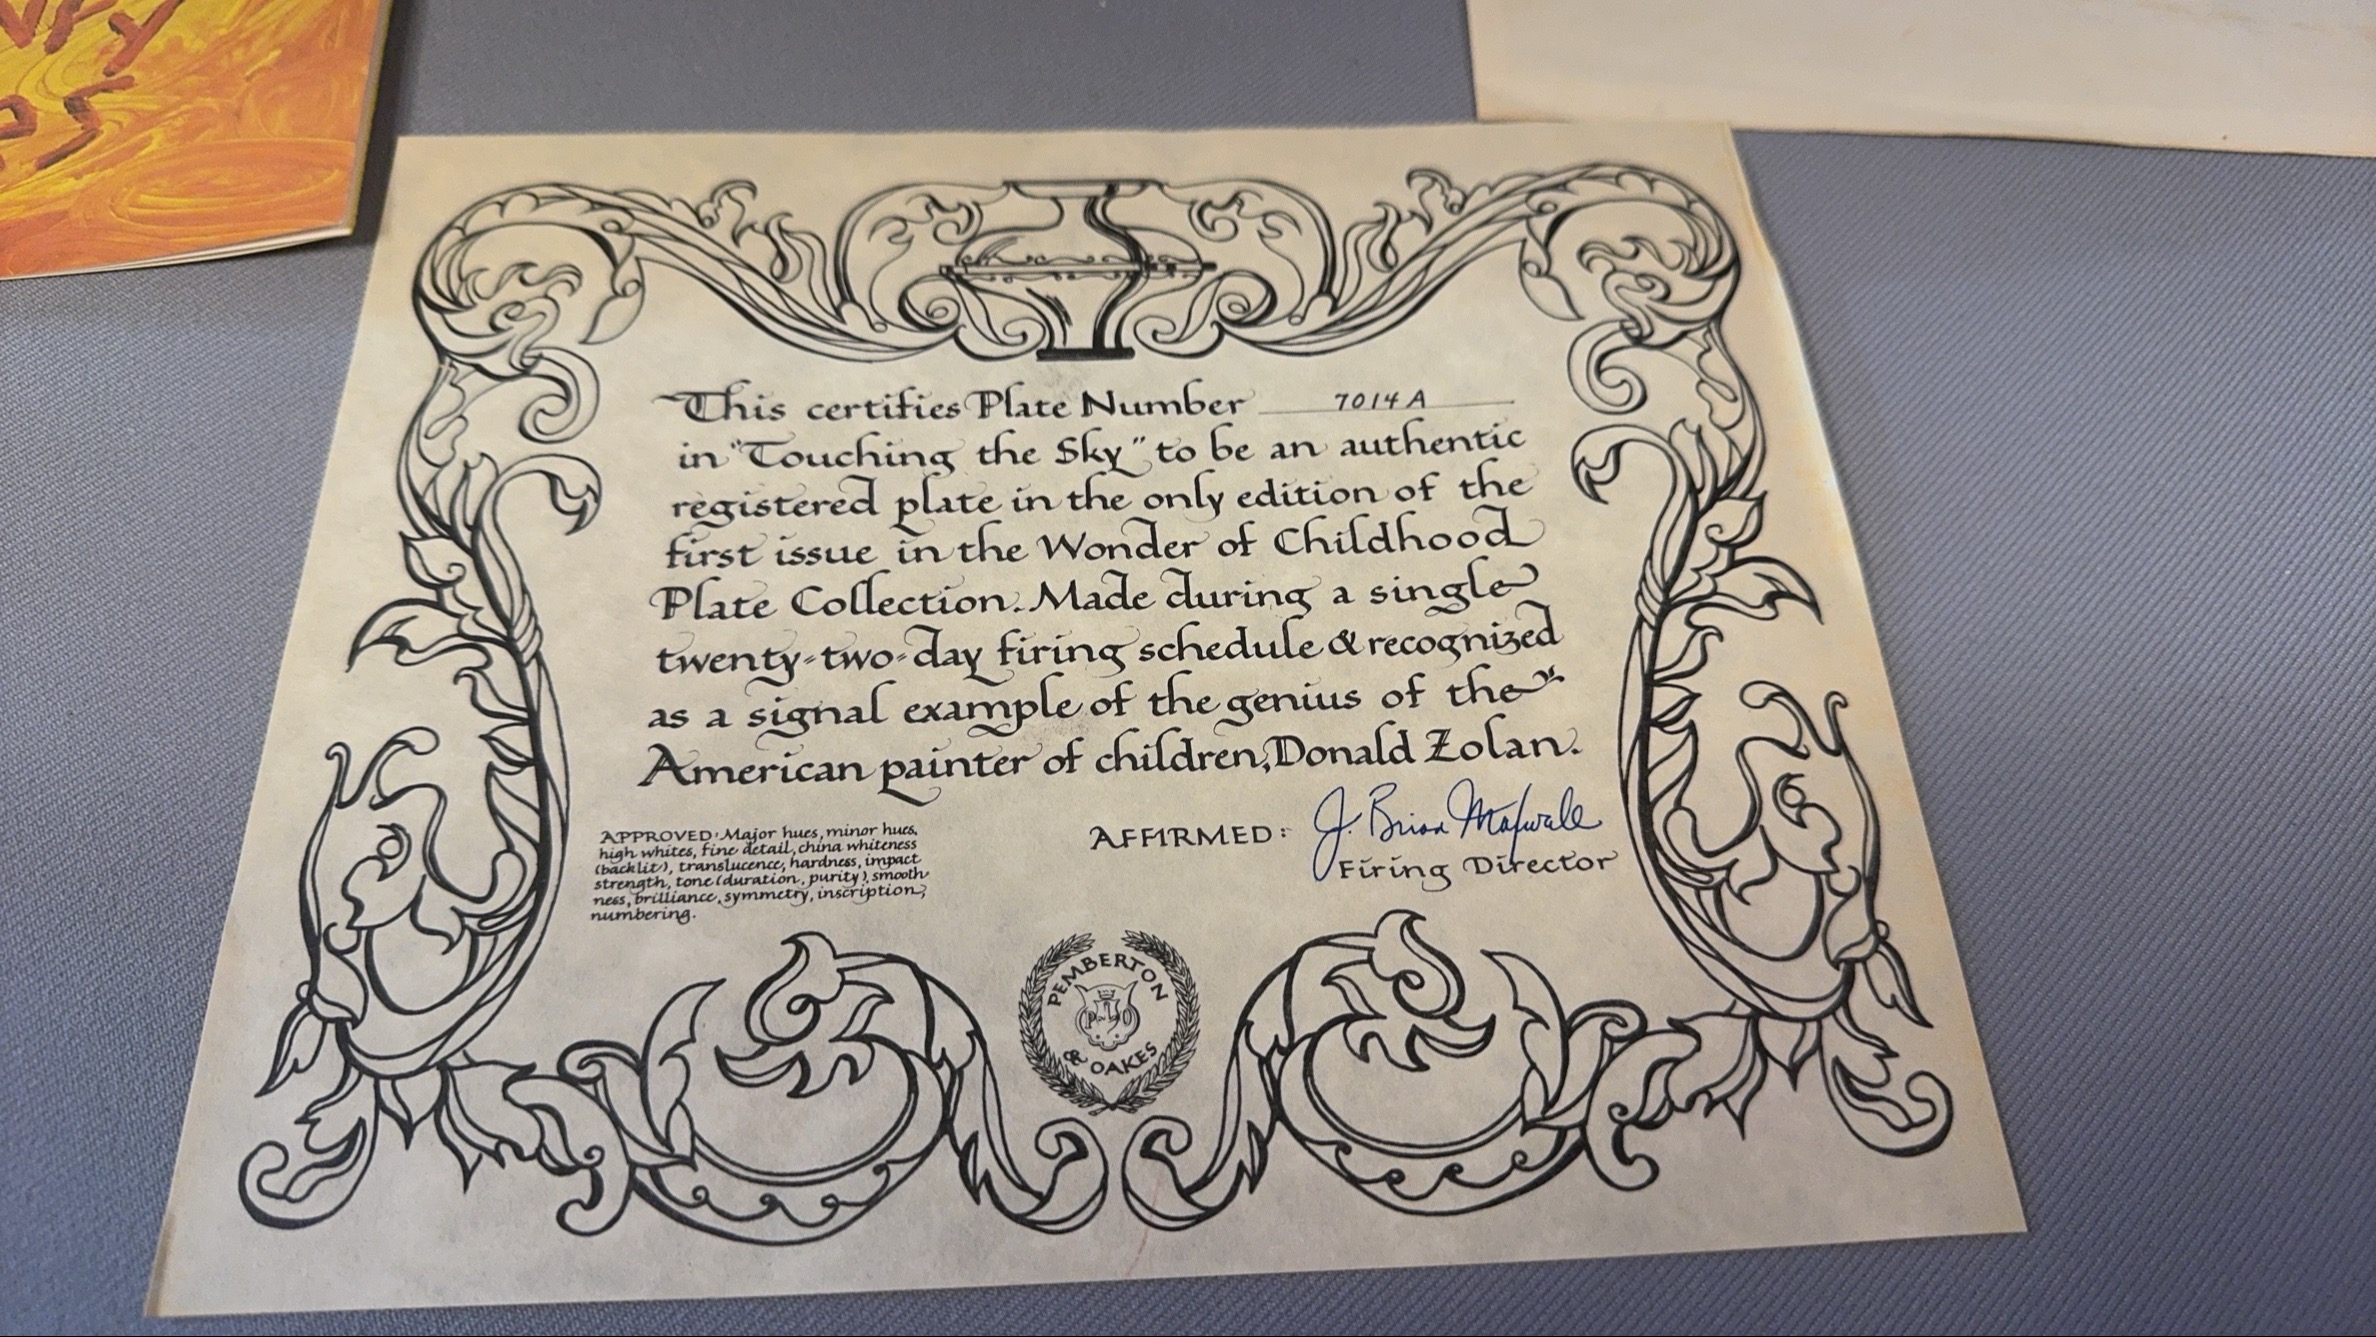 This certifies Plate Number 7014 A
in "Touching the Sky" to be an authentic
registered plate in the only edition of the
first issue in the Wonder of Childhood
Plate Collection. Made during a single
twenty-two-day firing schedule & recognized
as a signal example of the genius of the
American painter of children, Donald Zolan.
APPROVED: Major hues, minor hues,
high whites, fine detail, china whiteness
(backlit), translucence, hardness, impact
strength, tone (duration, purity), smooth
ness, brilliance, symmetry, inscription,
numbering.
AFFIRMED: J. Brian
Firing Director
PEMBERTON
P&O
& OAKES